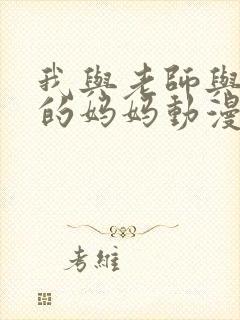 我與老師與
的妈妈動漫
考維